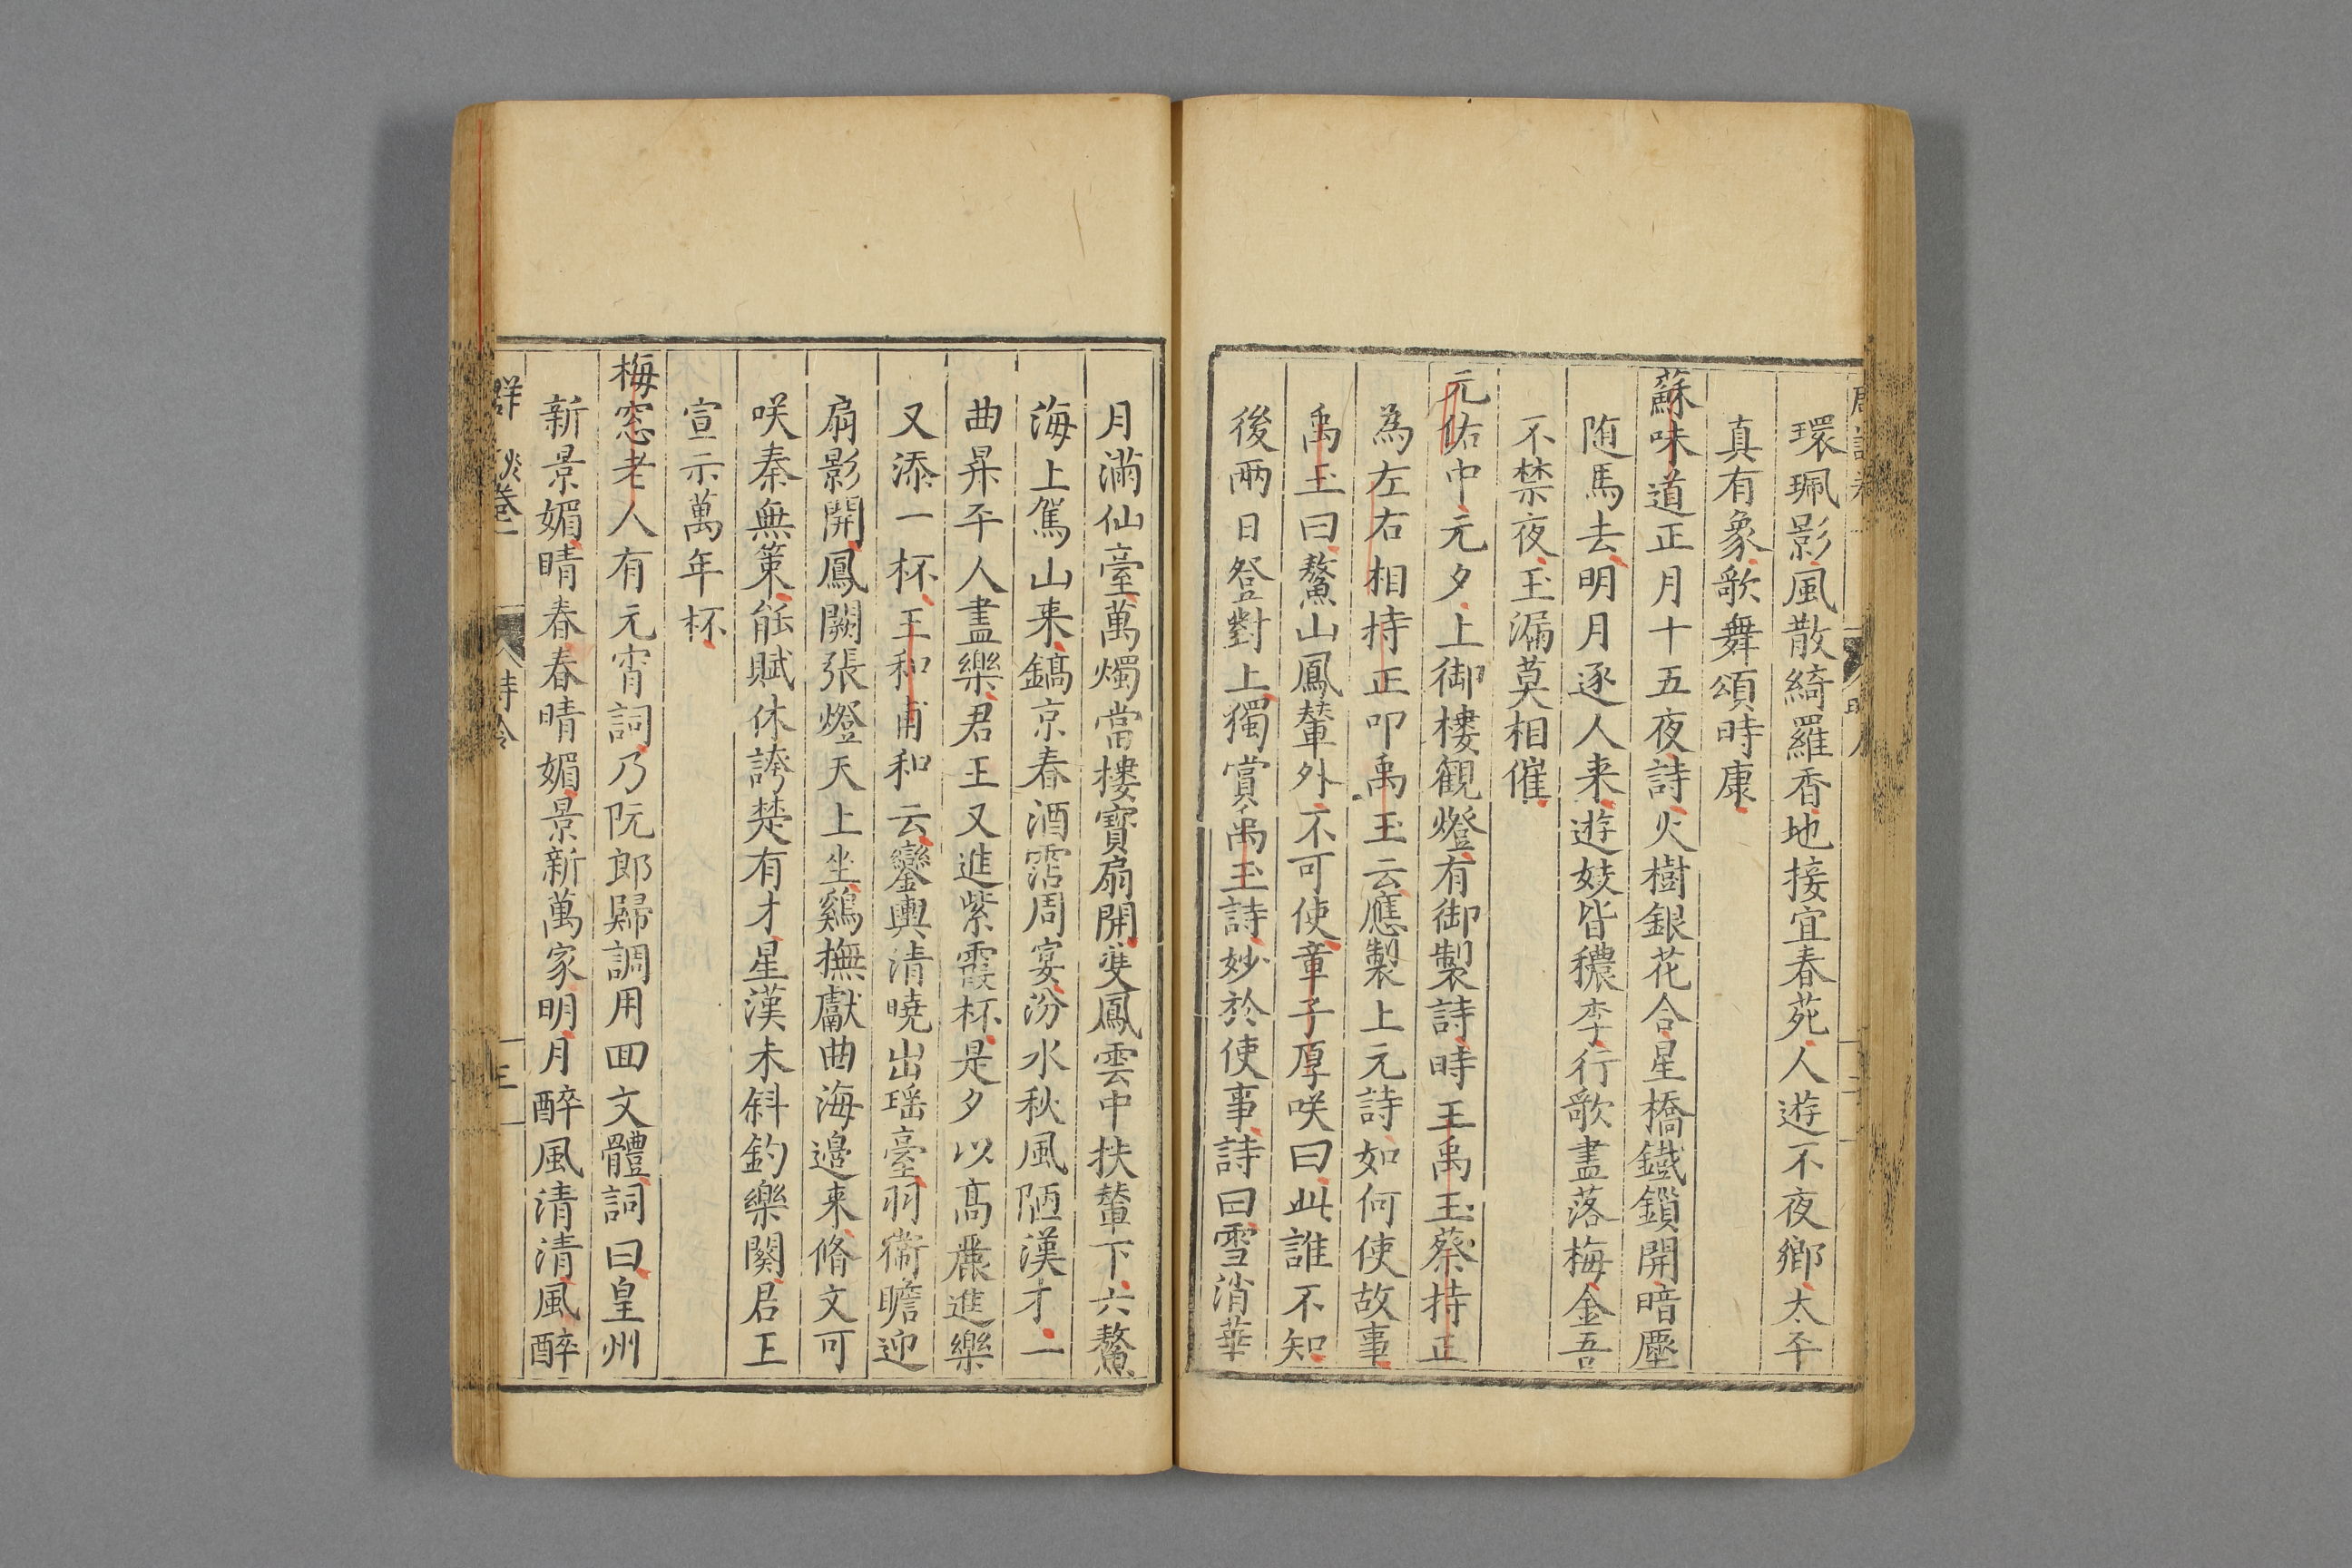 環珮影風散綺羅香地接宜春苑人遊不夜鄉太平
真有象歌舞頌時康
蘇味道正月十五夜詩火樹銀花合星橋鐵鎖開暗塵
随馬去明月逐人来遊妓皆穠李行歌盡落梅金吾
不禁夜玉漏莫相催
元佑中元夕上御樓観燈有御製詩時王禹玉蔡持正
為左右相持正叩禹玉云應製上元詩如何使故事
禹玉曰鰲山鳳輦外不可使章子厚咲曰此誰不知
後兩日登對上獨賞禹玉詩妙於使事詩曰雪消華
月滿仙臺萬燭當樓寶扇開雙鳳雲中扶輦下六鰲
海上駕山来鎬京春酒霑周宴汾水秋風陋漢才一
曲昇平人盡樂君王又進紫霞杯是夕以髙麗進樂
又添一杯王和甫和云鑾輿清曉出瑶臺羽衛瞻迎
扇影開鳳闕張燈天上坐鷄撫獻曲海邉来脩文可
咲秦無策能賦休誇楚有才星漢未斜釣樂闋君王
宣示萬年杯
梅窓老人有元宵詞乃阮郎歸調用囬文體詞曰皇州
新景媚晴春春晴媚景新萬家明月醉風清清風醉
群談卷一 詩令 三